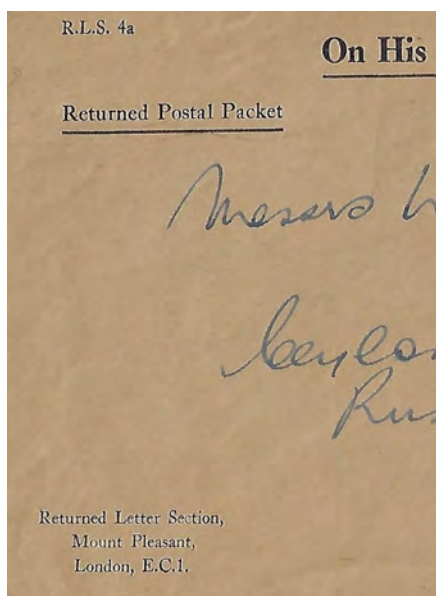 R.L.S. 4a
On His
Returned Postal Packet
Messrs
Returned Letter Section,
Mount Pleasant,
London, E.C.1.